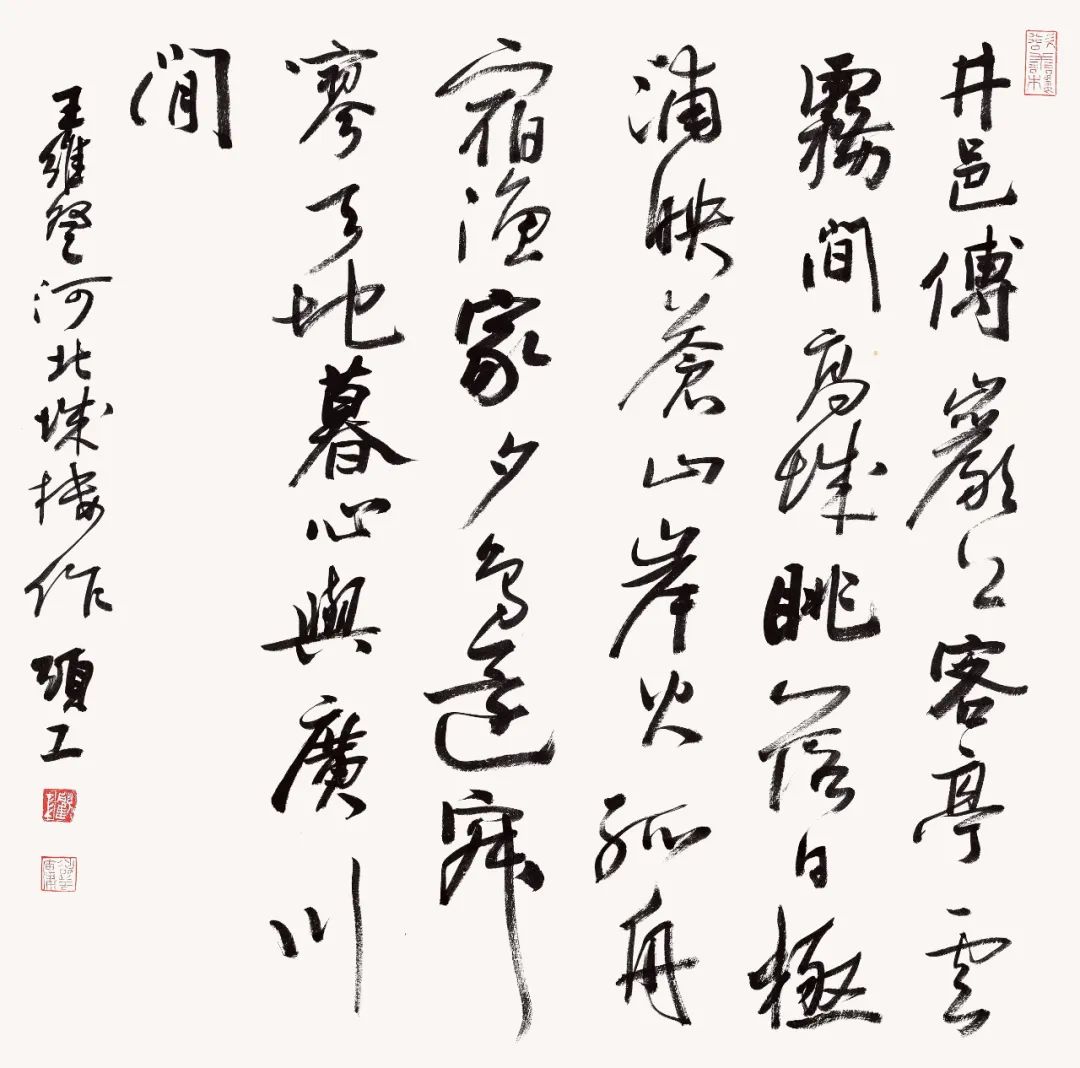 井邑傅巖上客亭雲
霧間高城眺落日極
浦映蒼山岸火孤舟
宿漁家夕鳥還寂
寥天地暮心與廣川
閒
王維登河北城樓作 顧工